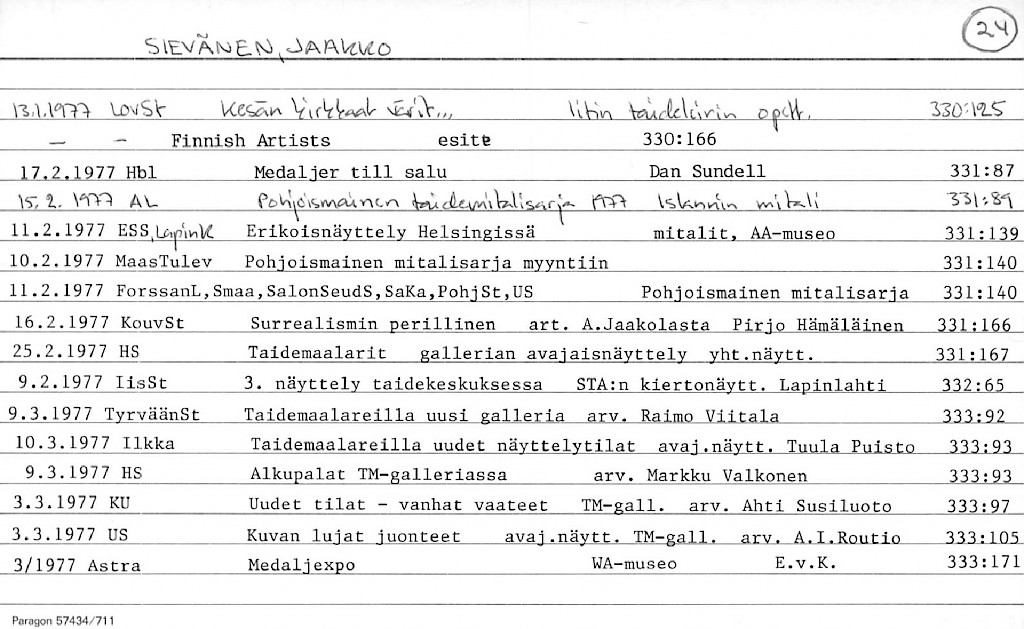 24
SIEVÄNEN, JAAKKO
13.1.1977 LovSt Kesän kirkkaat värit... Iitin taideleirin opett. 330:125
— – Finnish Artists esite 330:166
17.2.1977 Hbl Medaljer till salu Dan Sundell 331:87
15.2.1977 AL Pohjoismainen taidemitalisarja 1977 Islannin mitali 331:89
11.2.1977 ESS, LapinK Erikoisnäyttely Helsingissä mitalit, AA-museo 331:139
10.2.1977 MaasTulev Pohjoismainen mitalisarja myyntiin 331:140
11.2.1977 ForssanL,Smaa,SalonSeudS,SaKa,PohjSt,US Pohjoismainen mitalisarja 331:140
16.2.1977 KouvSt Surrealismin perillinen art. A.Jaakolasta Pirjo Hämäläinen 331:166
25.2.1977 HS Taidemaalarit gallerian avajaisnäyttely yht.näytt. 331:167
9.2.1977 IisSt 3. näyttely taidekeskuksessa STA:n kiertonäytt. Lapinlahti 332:65
9.3.1977 TyrväänSt Taidemaalareilla uusi galleria arv. Raimo Viitala 333:92
10.3.1977 Ilkka Taidemaalareilla uudet näyttelytilat avaj.näytt. Tuula Puisto 333:93
9.3.1977 HS Alkupalat TM-galleriassa arv. Markku Valkonen 333:93
3.3.1977 KU Uudet tilat - vanhat vaateet TM-gall. arv. Ahti Susiluoto 333:97
3.3.1977 US Kuvan lujat juonteet avaj.näytt. TM-gall. arv. A.I.Routio 333:105
3/1977 Astra Medaljexpo WA-museo E.v.K. 333:171
Paragon 57434/711